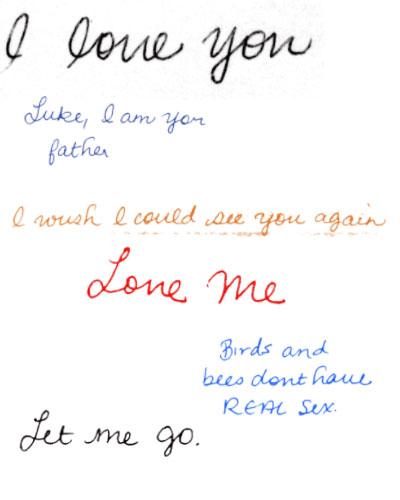 I love you
Luke, I am your
father
I wish I could see you again
Love Me
Birds and
bees dont have
REAL Sex.
Let me go.